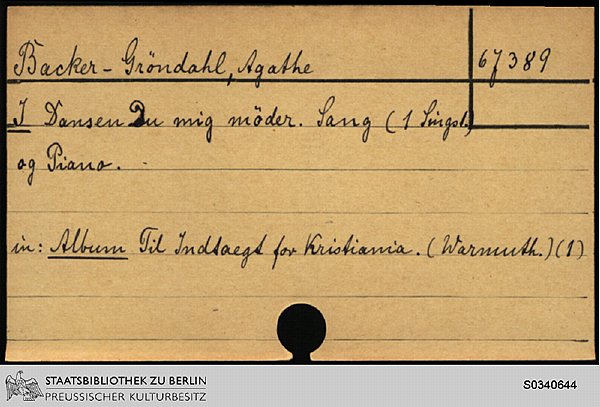 Backer-Gröndahl, Agathe
67389
I Dansen Du mig möder. Sang (1 Singst.)
og Piano.
in: Album Til Indtaegt for Kristiania. (Warmuth.) (1)
STAATSBIBLIOTHEK ZU BERLIN
PREUSSISCHER KULTURBESITZ
S0340644